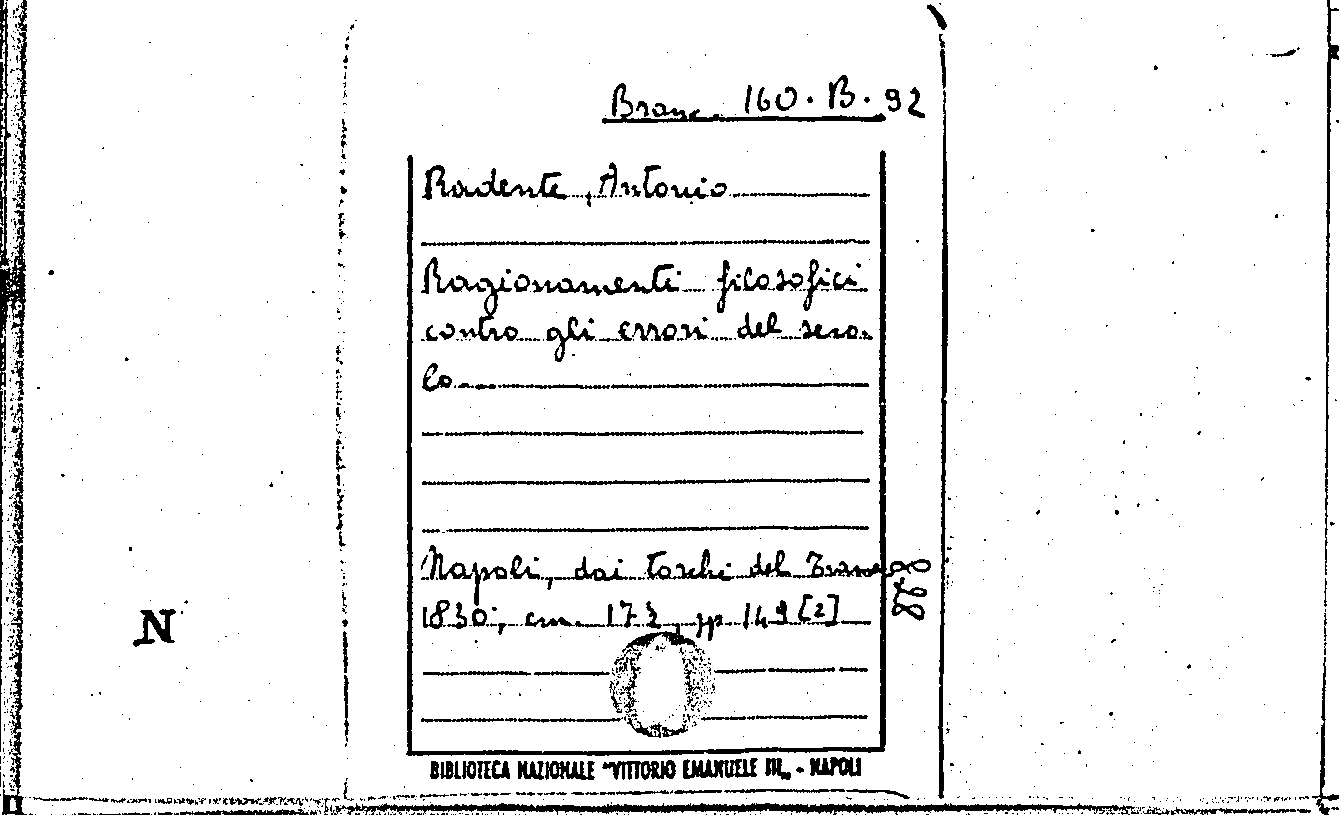 Branc. 160. B. 92
Radente, Antonio
Ragionamenti filosofici
contro gli errori del seco-
lo
Napoli, dai torchi del Tramater
1830; cm. 17½, pp. 149 [2]
828
N
BIBLIOTECA NAZIONALE "VITTORIO EMANUELE III„ - NAPOLI